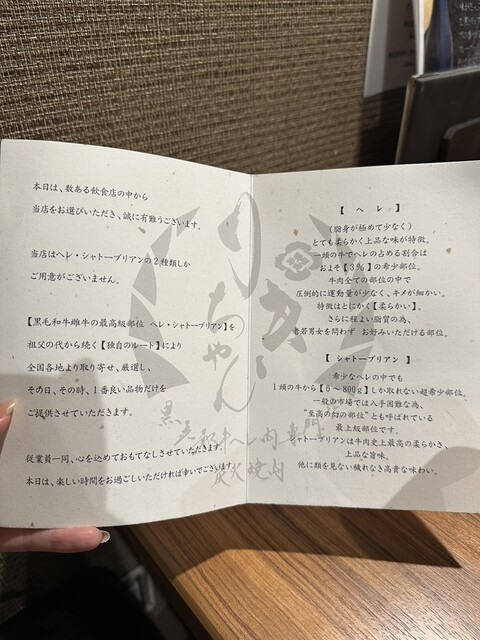 本日は、数ある飲食店の中から
当店をお選びいただき、誠に有難うございます。
当店はヘレ・シャトーブリアンの2種類しか
ご用意がございません。
【黒毛和牛雌牛の最高級部位 ヘレ・シャトーブリアン】を
祖父の代から続く【独自のルート】により
全国各地より取り寄せ、厳選し、
その日、その時、1番良い品物だけを
ご提供させていただきます。
従業員一同、心を込めておもてなしさせていただきます。
本日は、楽しい時間をお過ごしいただければ幸いでございます。
【 ヘ レ 】
(脂身が極めて少なく)
とても柔らかく上品な味が特徴。
一頭の牛でヘレの占める割合は
およそ【3%】の希少部位。
牛肉全ての部位の中で
圧倒的に運動量が少なく、キメが細かい。
特徴はとにかく【柔らかい】。
さらに程よい脂質の為、
老若男女を問わず お好みいただける部位。
【 シャトーブリアン 】
希少なヘレの中でも
1頭の牛から【6〜800g】しか取れない超希少部位。
一般の市場では入手困難な為、
“至高の幻の部位”とも呼ばれている
最上級部位です。
シャトーブリアンは牛肉史上最高の柔らかさ、
上品な旨味。
他に類を見ない穢れなき高貴な味わい。
黒毛和牛ヘレ肉専門
炭火焼肉